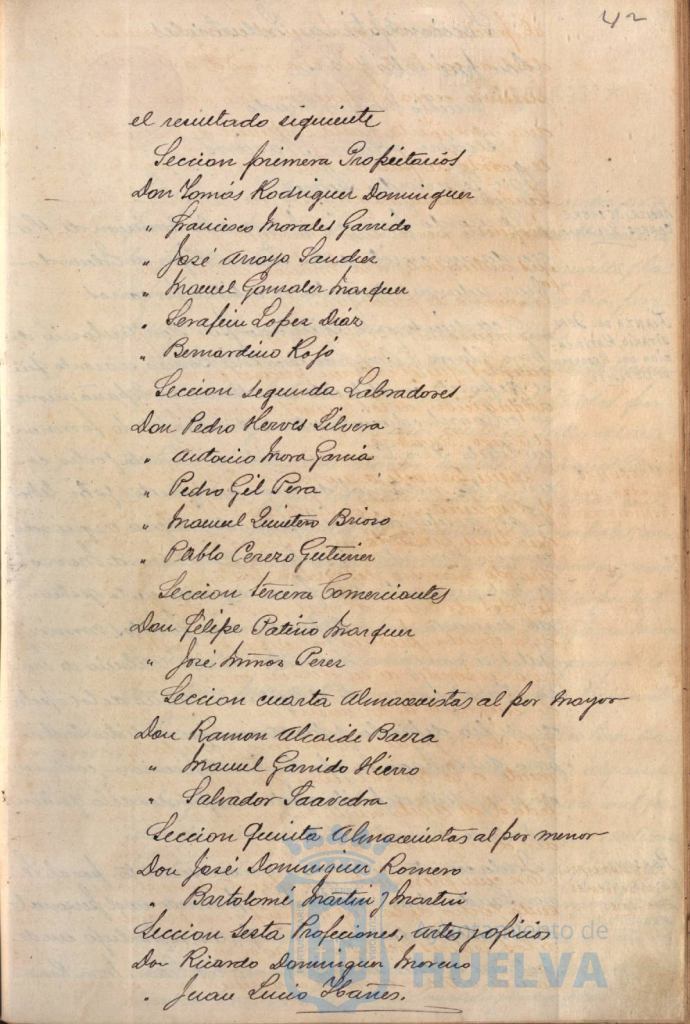 42
el resultado siguiente
Seccion primera Propietarios
Don Tomás Rodriguez Dominguez
" Francisco Morales Garrido
" José Arroyo Sanchez
" Manuel Gonzalez Marquez
" Serafin Lopez Diáz
" Bernardino Rojo
Seccion segunda Labradores
Don Pedro Herves Silvera
" Antonio Mora Garcia
" Pedro Gil Pera
" Manuel Quintero Brioso
" Pablo Cerezo Gutierrez
Seccion tercera Comerciantes
Don Felipe Patiño Marquez
" José Muñoz Perez
Seccion cuarta Almacenistas al por mayor
Don Ramon Alcaide Baeza
" Manuel Garrido Hierro
" Salvador Saavedra
Seccion Quinta Almacenistas al por menor
Don José Dominguez Romero
" Bartolomé Martin y Martin
Seccion Sesta Profeciones, artes y oficios
Don Ricardo Dominguez Moreno
" Juan Lucio Ibañes.
Ayuntamiento de
HUELVA